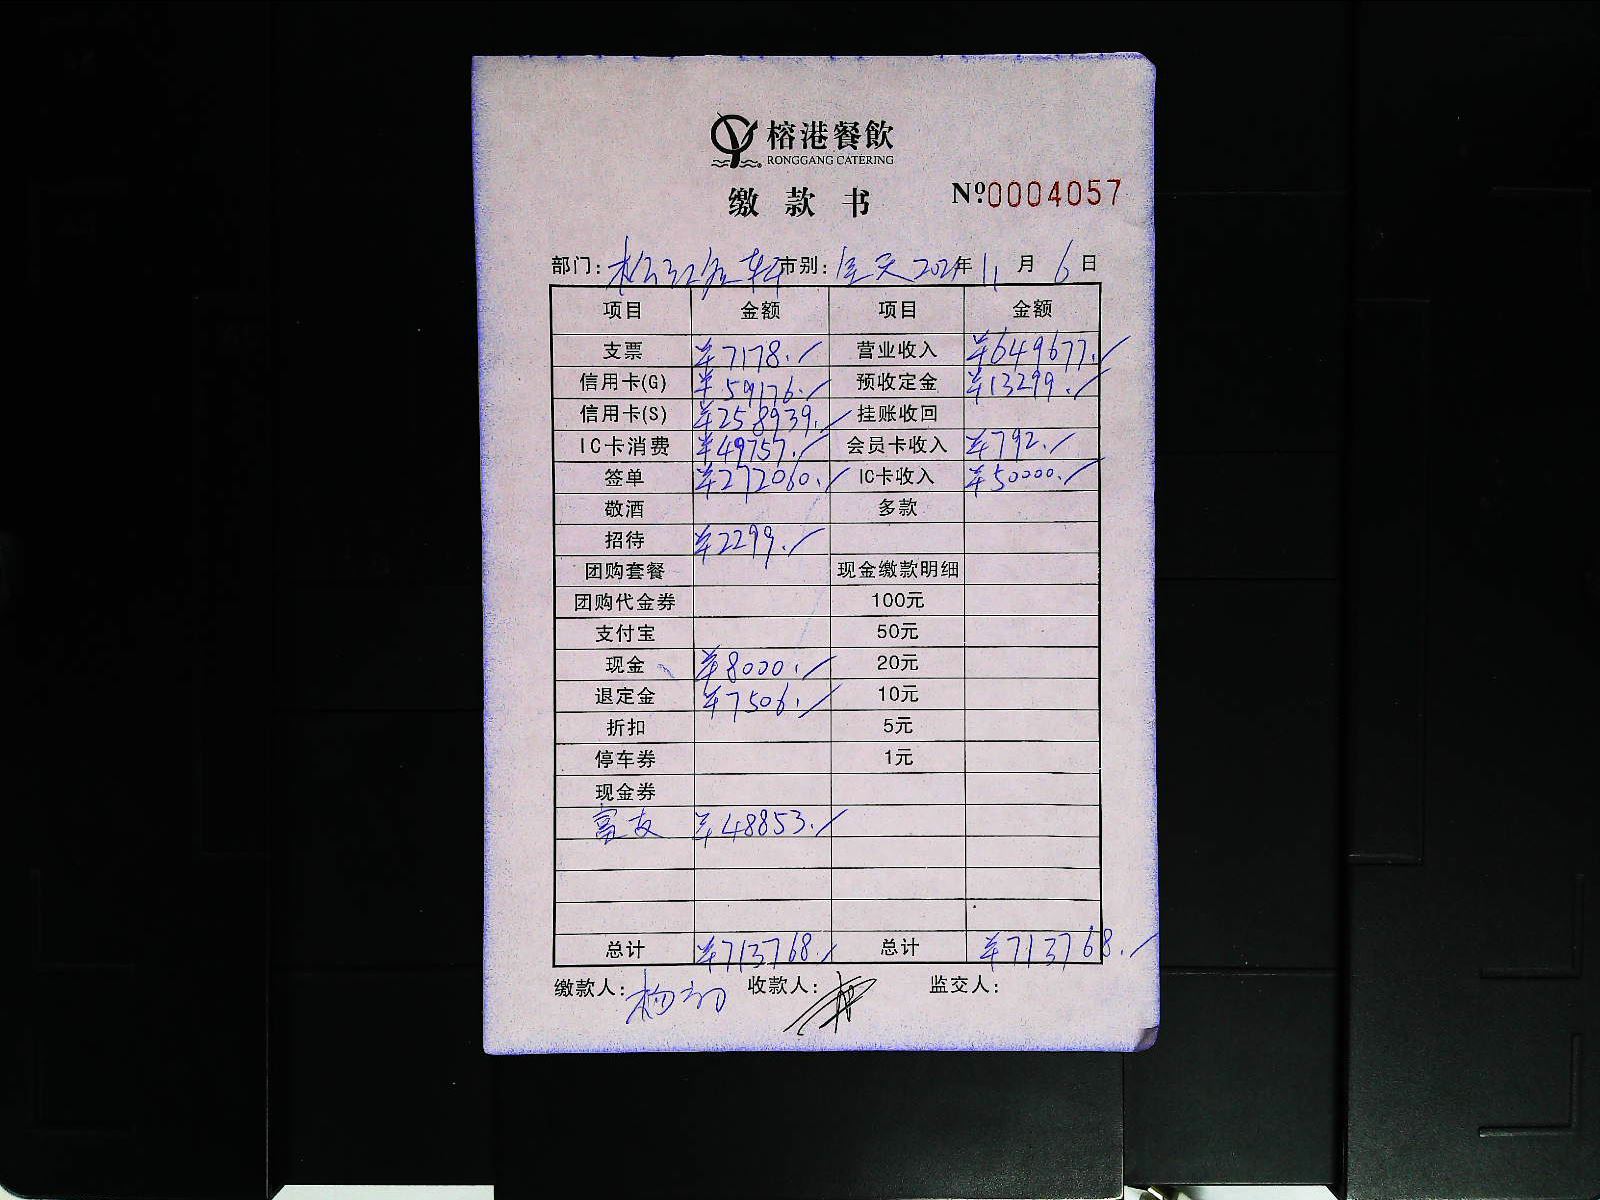 榕港餐飲
RONGGANG CATERING
缴款书 Nº 0004057
部门: 松江名轩 市别: 全天 2021年 11月 6日
项目 金额 项目 金额
支票 ¥7178. 营业收入 ¥649677.
信用卡(G) ¥59176. 预收定金 ¥13299.
信用卡(S) ¥258939. 挂账收回
IC卡消费 ¥49757. 会员卡收入 ¥792.
签单 ¥272060. IC卡收入 ¥50000.
敬酒 多款
招待 ¥2299.
团购套餐 现金缴款明细
团购代金券 100元
支付宝 50元
现金 ¥8000. 20元
退定金 ¥7506. 10元
折扣 5元
停车券 1元
现金券
富友 ¥48853.
总计 ¥713768. 总计 ¥713768.
缴款人: 杨 收款人: 监交人: